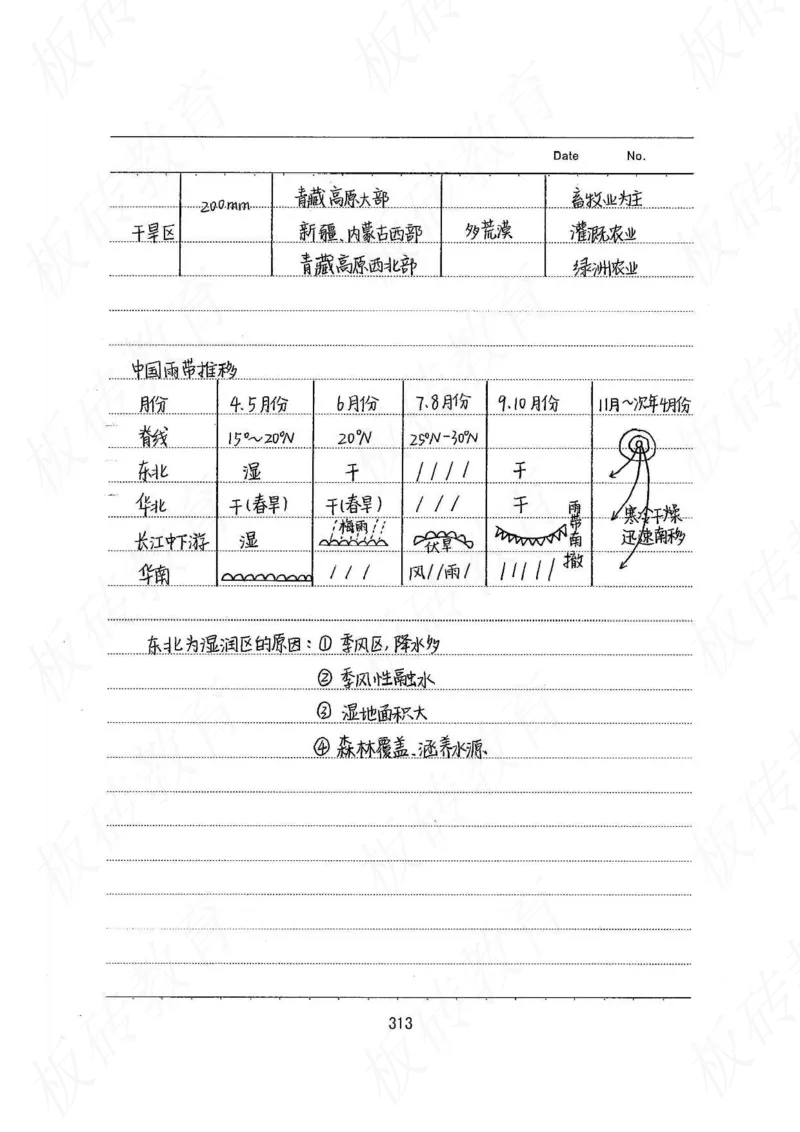 Date No.
200mm 青藏高原大部 畜牧业为主
干旱区 新疆、内蒙古西部 多荒漠 灌溉农业
青藏高原西北部 绿洲农业
中国雨带推移
月份 4.5月份 6月份 7.8月份 9.10月份 11月~次年4月份
脊线 15°~20°N 20°N 25°N-30°N
东北 湿 干 干
华北 干(春旱) 干(春旱) 干 雨带南撤 寒冷干燥
长江中下游 湿 梅雨 伏旱 迅速南移
华南 风 雨
东北为湿润区的原因:① 季风区,降水多
② 季风性融水
③ 湿地面积大
④ 森林覆盖、涵养水源、
313
板砖教育